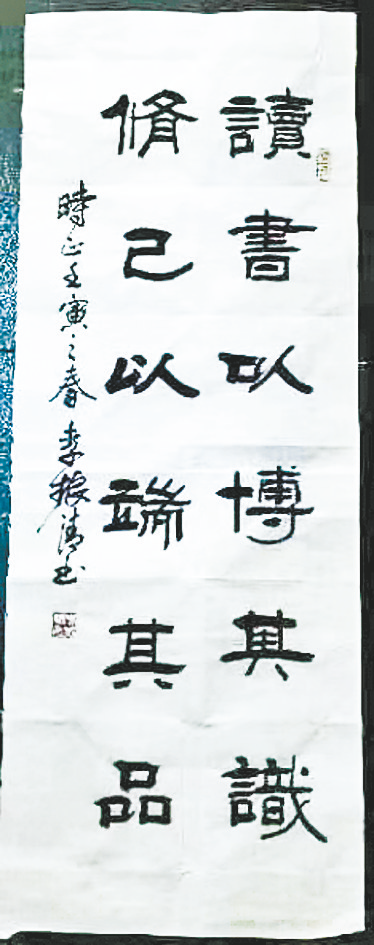 讀書以博其識
脩己以端其品
時正壬寅之春李振清书